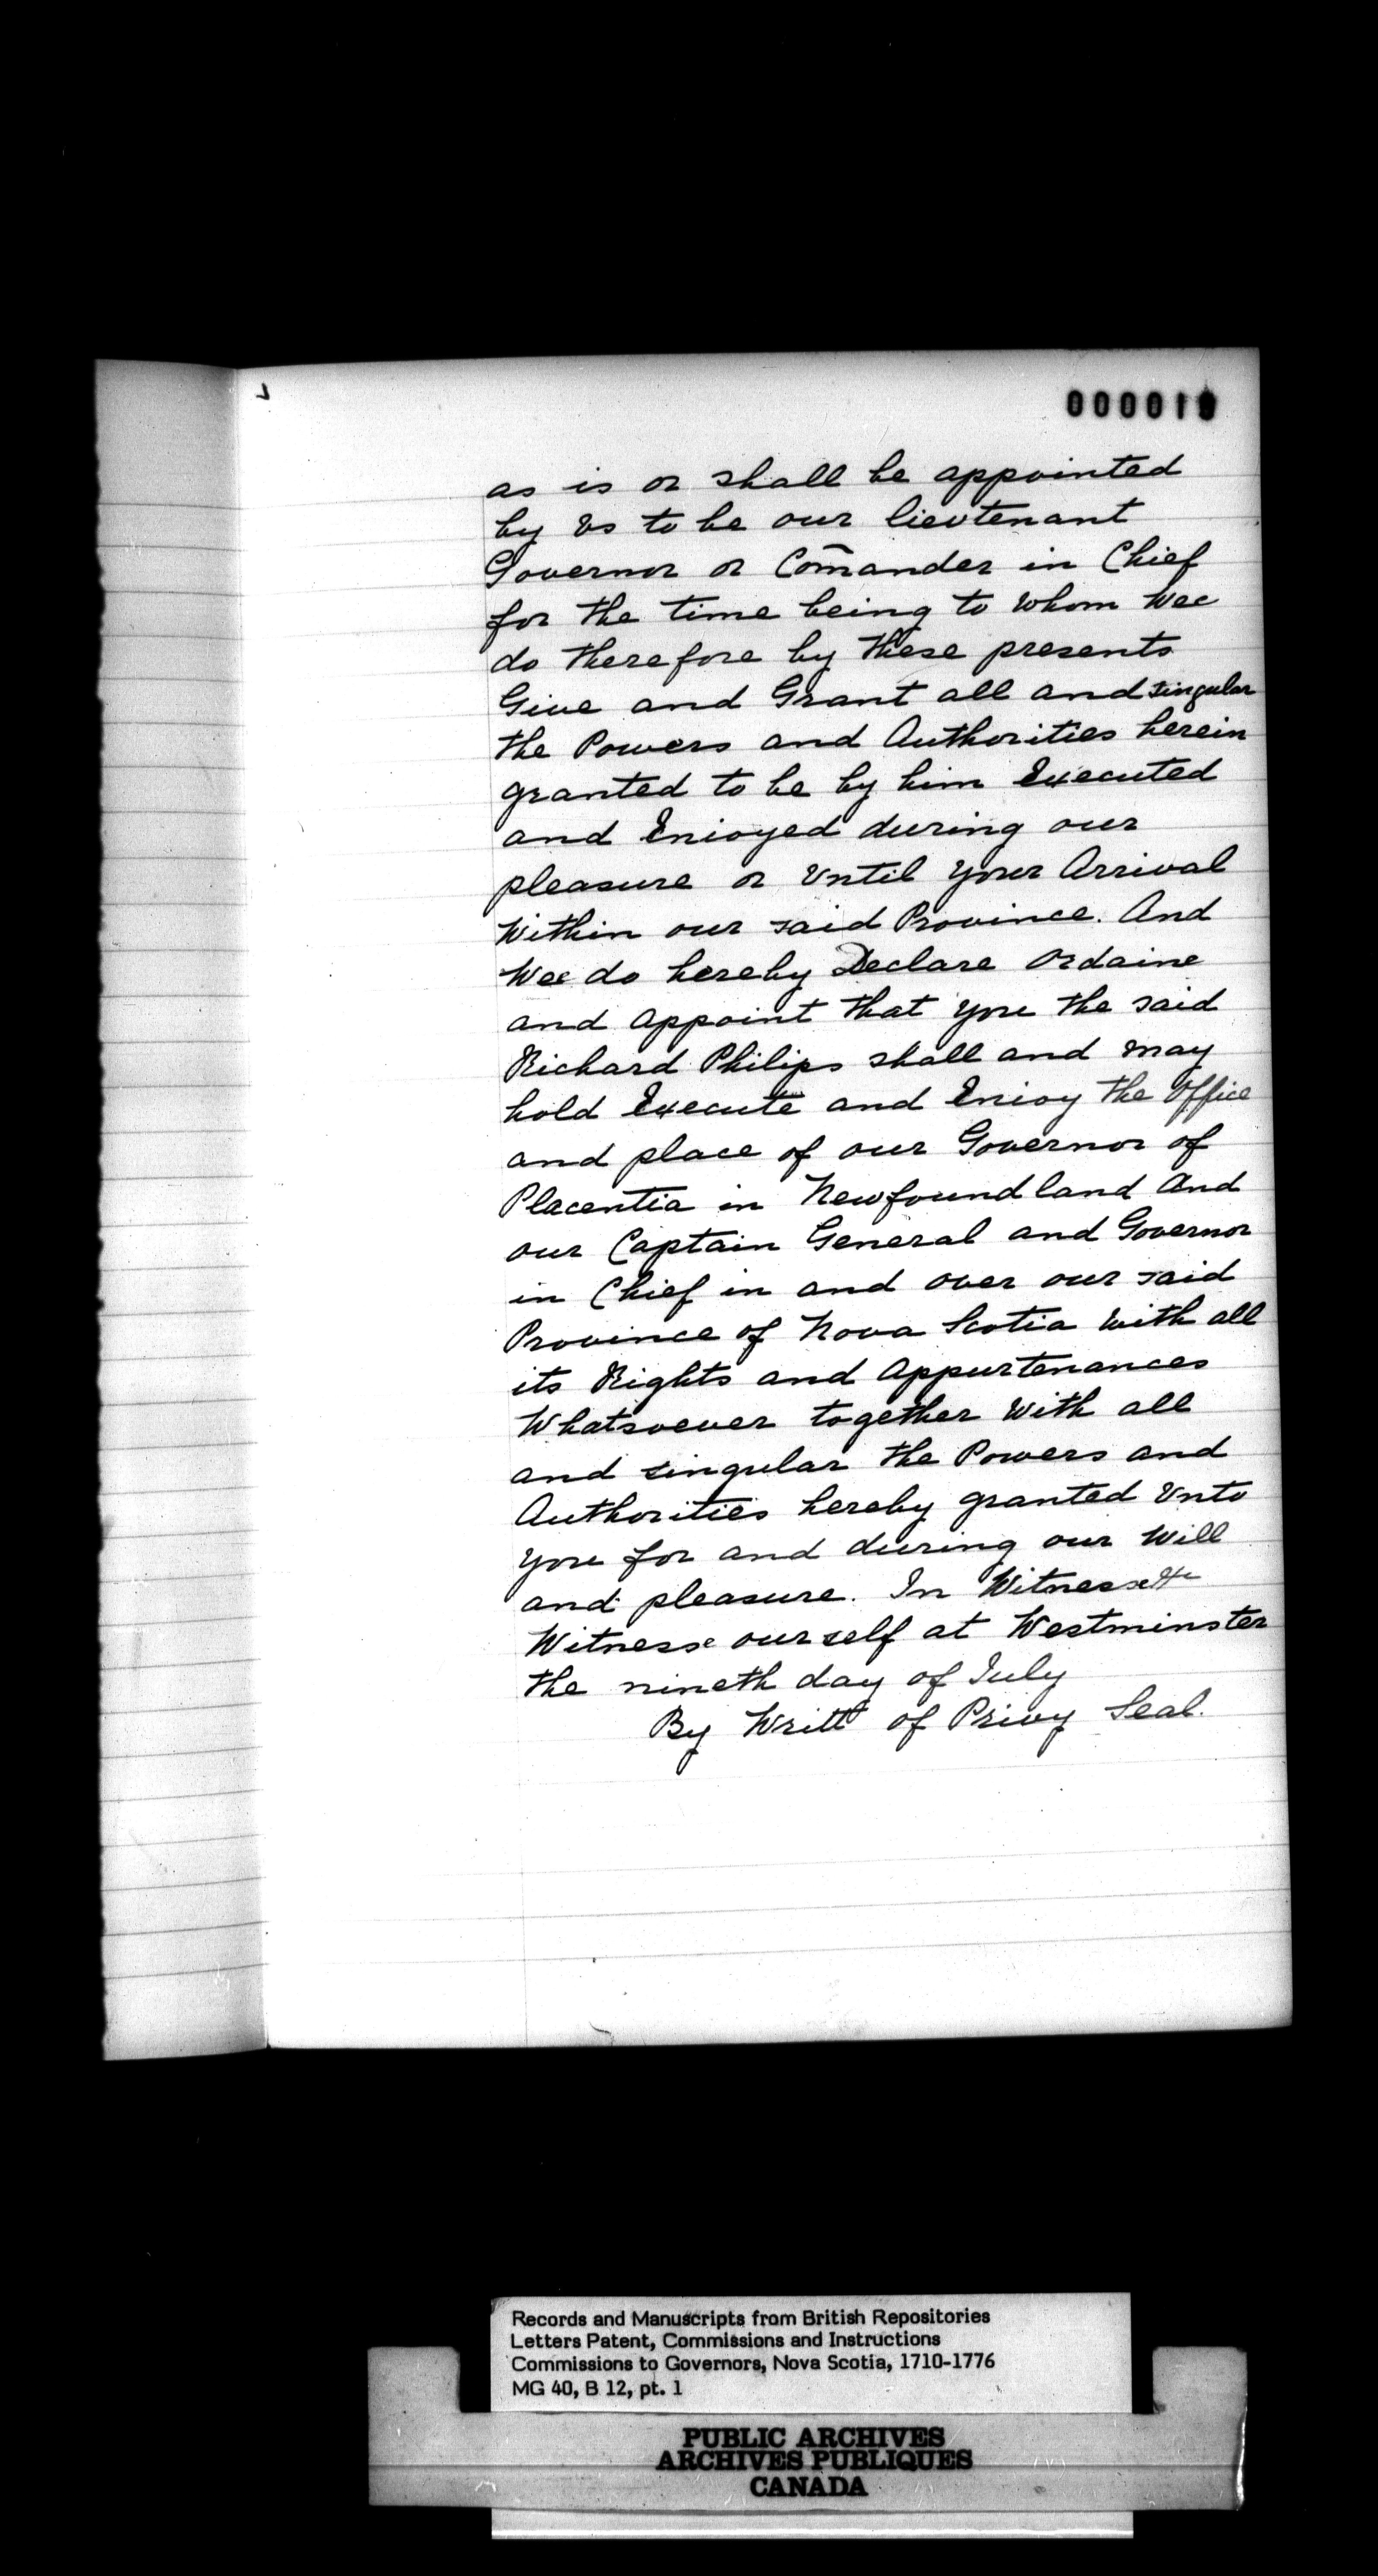 as is or shall be appointed
by Vs to be our lieutenant
Governor or Com̃ander in Chief
for the time being to Whom Wee
do therefore by these presents
Give and Grant all and singular
the Powers and Authorities herein
granted to be by him Executed
and Enioyed during our
pleasure or Vntil your Arrival
Within our said Province. And
Wee do hereby Declare Ordaine
and appoint that you the said
Richard Philips shall and may
hold Execute and Enioy the Office
and place of our Governor of
Placentia in Newfoundland and
our Captain General and Governor
in Chief in and over our said
Province of Nova Scotia With all
its Rights and Appurtenances
Whatsoever together With all
and singular the Powers and
Authorities hereby granted Vnto
you for and during our Will
and pleasure. In Witnesse
Witnesse ourself at Westminster
the nineth day of July
By Writt of Privy Seal.
Records and Manuscripts from British Repositories
Letters Patent, Commissions and Instructions
Commissions to Governors, Nova Scotia, 1710-1776
MG 40, B 12, pt. 1
PUBLIC ARCHIVES
ARCHIVES PUBLIQUES
CANADA